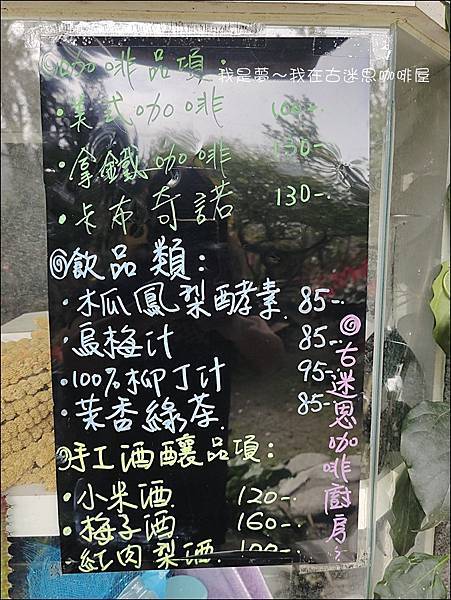 ◎咖啡品項：
我是夢～我在古迷思咖啡屋
·美式咖啡 100-.
·拿鐵咖啡 130-.
·卡布奇諾 130-.
◎飲品類：
·木瓜鳳梨酵素. 85-.
·烏梅汁 85-.
·100%柳丁汁 95-.
·茉香綠茶. 85-.
◎手工酒釀品項：
·小米酒 120-.
·梅子酒 160-.
·紅肉李酒.
◎古迷思咖啡廚房